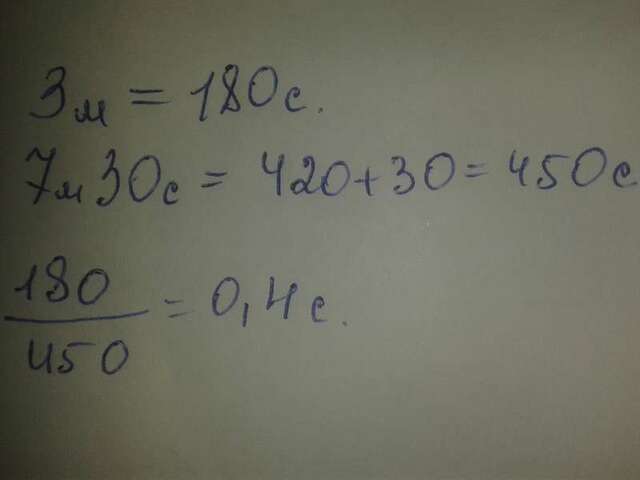 3м = 180с.
7м30с = 420+30=450с
180/450 = 0,4с.